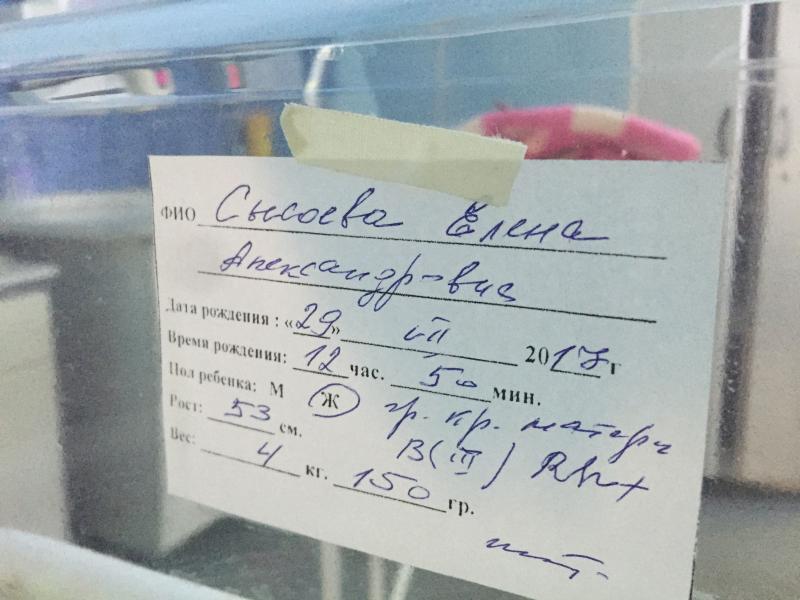 ФИО Сысоева Елена
Александровна
Дата рождения: «29» VII 2017 г
Время рождения: 12 час. 50 мин.
Пол ребенка: М Ж гр. кр. матери
Рост: 53 см. B(III) Rh+
Вес: 4 кг. 150 гр.